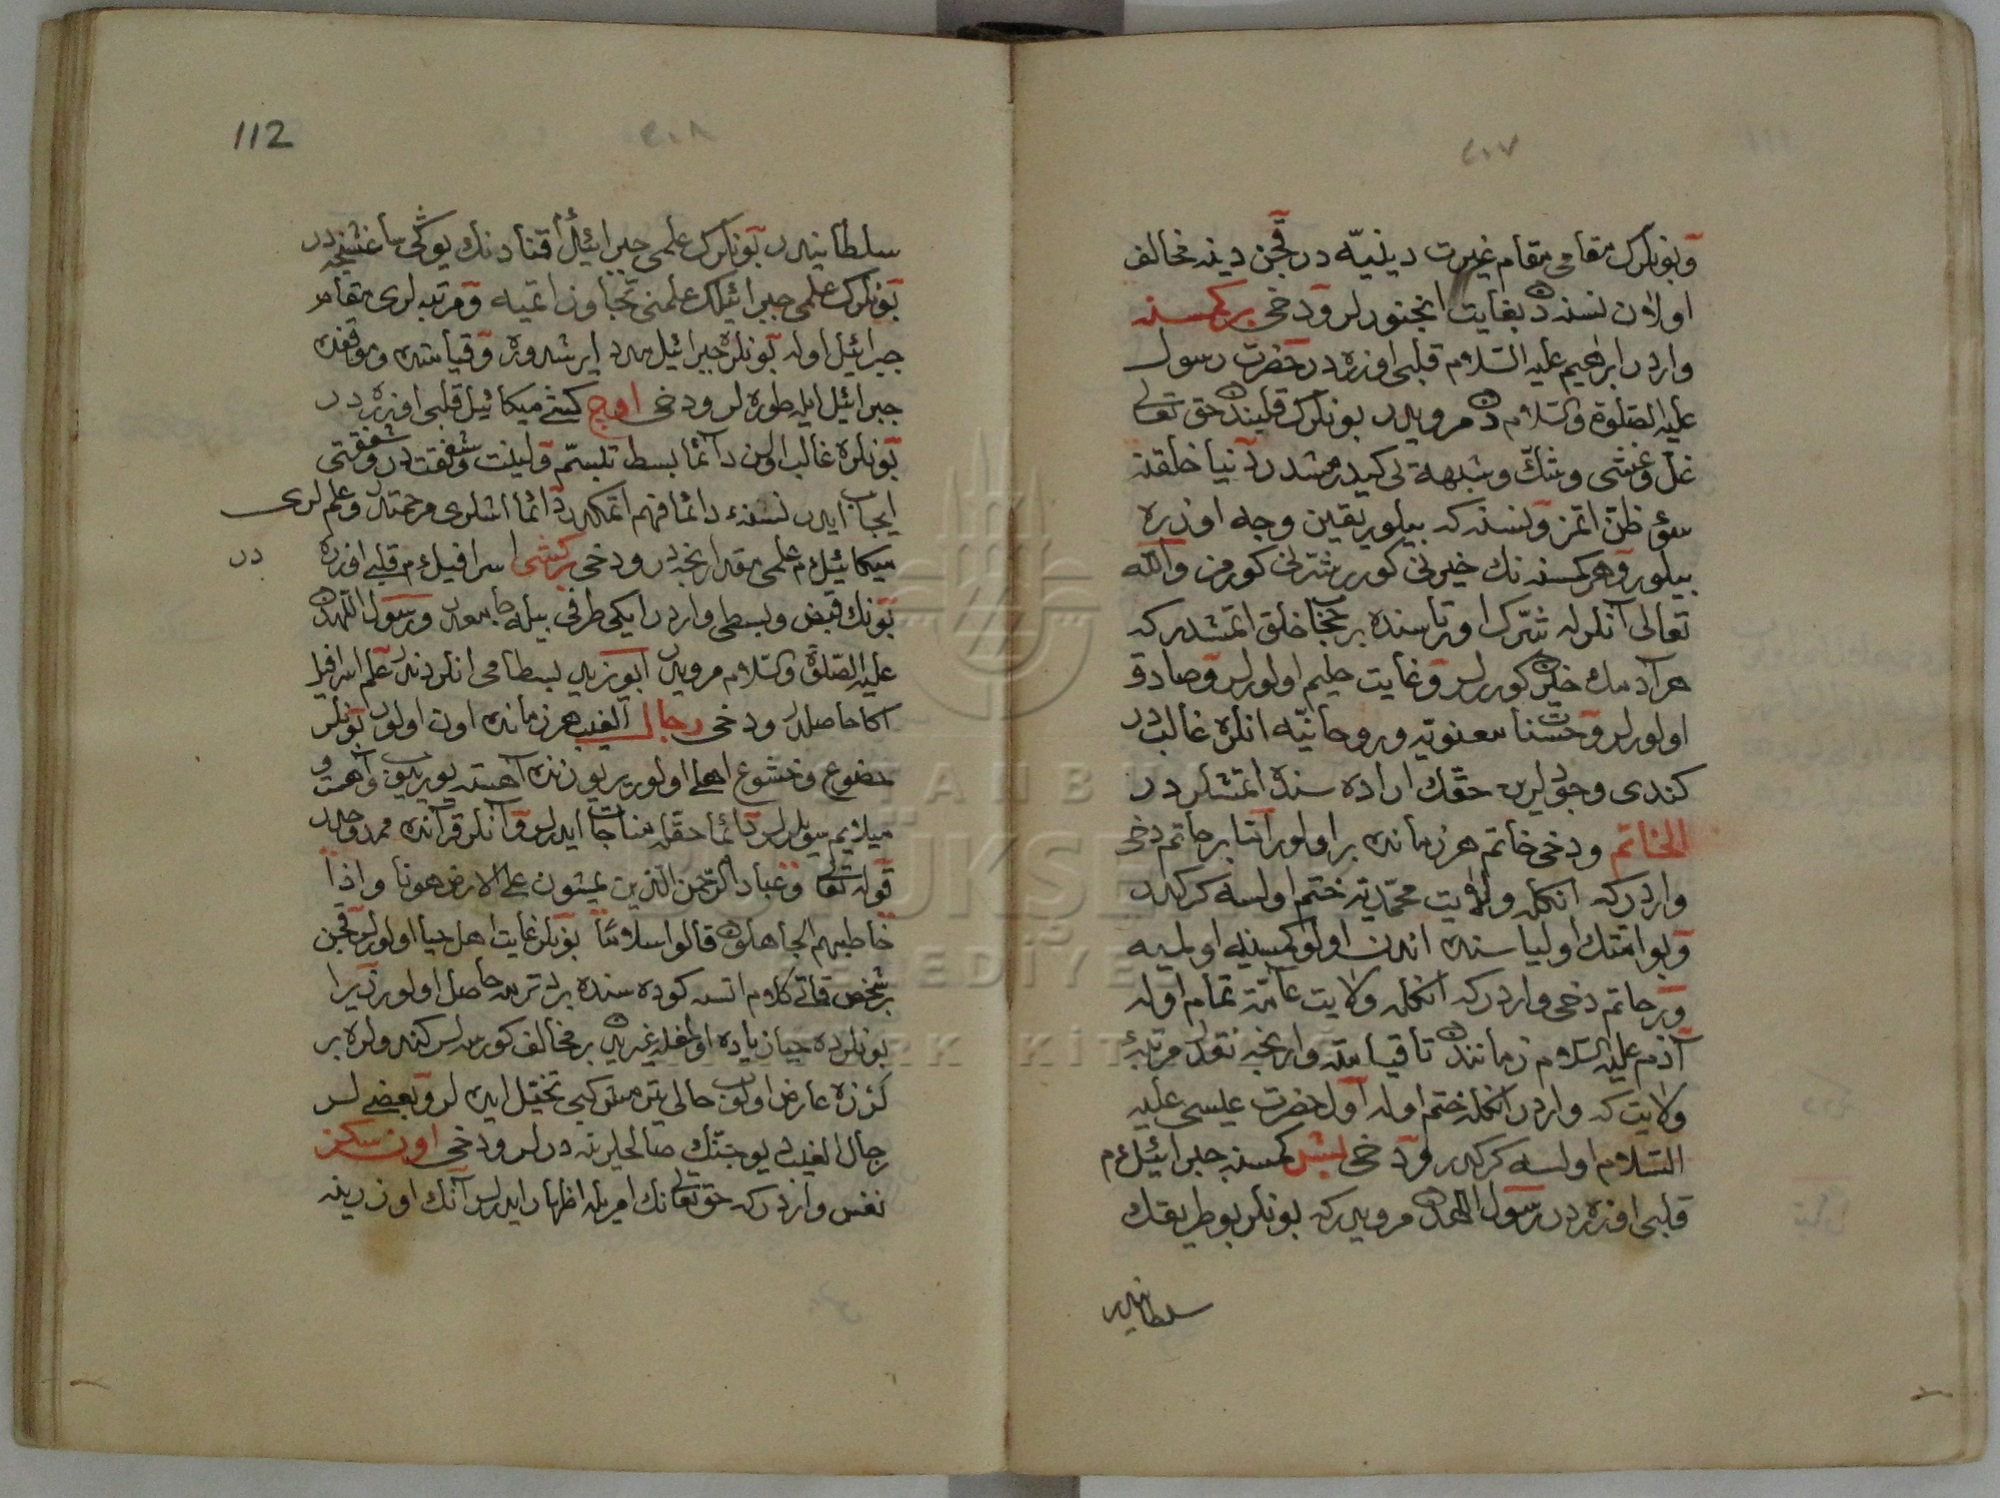 ٢٠٧
وبونلرك مقامى مقام غيرت دينيّه در قچن دينه مخالف
اولان نسنه دن بغايت انجنورلر ودخى بر كمسنه
واردر ابرهيم عليه السّلام قلبى اوزره در حضرت رسول
عليه الصّلوة والسّلام دن مرويدر بونلرك قلبندن حق تعالى
غلّ وغشى وشكّ وشبهه لى كيدرمشدر دنيا خلقنه
سوء ظنّ اتمز ونسنه كه بيلور يقين وجه اوزره
بيلور وهر كمسنه نك خيرنى كورر شرنى كورمز والله
تعالى آنلرله شرّك اورتاسنده بر حجاب خلق اتمشدر كه
هر آدمك خيرن كوررلر وغايت حليم اولورلر وصادق
اولورلر وحسنات معنويّه وروحانيّه انلره غالبدر
كندى وجودلرين حقّك اراده سنده اتمشلردر
الخاتم ودخى خاتم هر زمانده بر اولور امّا بر خاتم دخى
واردر كه انكله ولايت محمّديّه ختم اولسه كركدر
وبو امّتك اولياسنده اندن اولو كمسنه اولميه
وبر خاتم دخى واردر كه انكله ولايت عامّه تمام اوله
آدم عليه السّلام زماننده تا قيامته وارنجه نقدر مرتبهٔ
ولايت كه واردر انكله ختم اوله اول حضرت عيسى عليه
السّلام اولسه كركدر ودخى بش كمسنه جبرائيل ع م
قلبى اوزره در رسول اللهدن مرويدر كه بونلر بو طريقك
سلطانيدر
112
٢٠٨
سلطانيدر بونلرك علمى جبرائيل قنادنك يوكى صاغشنجه در
بونلرك علمى جبرائيلك علمنى تجاوز اتميه ومرتبه لرى مقام
جبرائيل اوله بونلره جبرائيل مدد ايرشدوره وقيامتده وموقفده
جبرائيل ايله طوره لر ودخى اوچ كشى ميكائيل قلبى اوزره در
بونلره غالب اولان دائما بسط تبسّم ولينت وشفقتدر وشفقتى
ايجاب ايدر نسنهء دائما فهم اتمكدر دائما اشلرى مرحمتدر وعلملرى
ميكائيل ع م علمى مقدارنجه در ودخى بر كشى اسرافيل ع م قلبى اوزره
در
بونك قبض وبسطى واردر ايكى طرفى بيله جامعدر ورسول اللهدن
عليه الصّلوة والسّلام مرويدر ابو يزيد بسطامى انلردندر علم اسرافيل
اكا حاصلدر ودخى رجال الغيب هر زمانده اون اولور بونلر
خضوع وخشوع اهلى اولور ير يوزنده آهسته يوريوب وآهسته و
ميلايم سويلرلر دائما حقله مناجات ايدرلر وآنلر قرآنده ممدوحدر
قوله تعالى وعباد الرّحمن الّذين يمشون على الارض هونا واذا
خاطبهم الجاهلون قالوا سلامًا بونلر غايت اهل حيا اولورلر قچن
بر شخص قاتى كلام اتسه كوده سنده بر دترمه حاصل اولور زيرا
بونلرده حيا زياده اولمغله غيريدن بر مخالف كورسه لر كندولره بر
لرزه عارض اولوب حالى يتر مش كبى تخيّل ايدرلر وبعضيلر
رجال الغيب يو جنّك صالحلرينه درلر ودخى اون سكز
نفس واردر كه حق تعالىنك امريله اظهار ايدرلر آنك اوزرينه